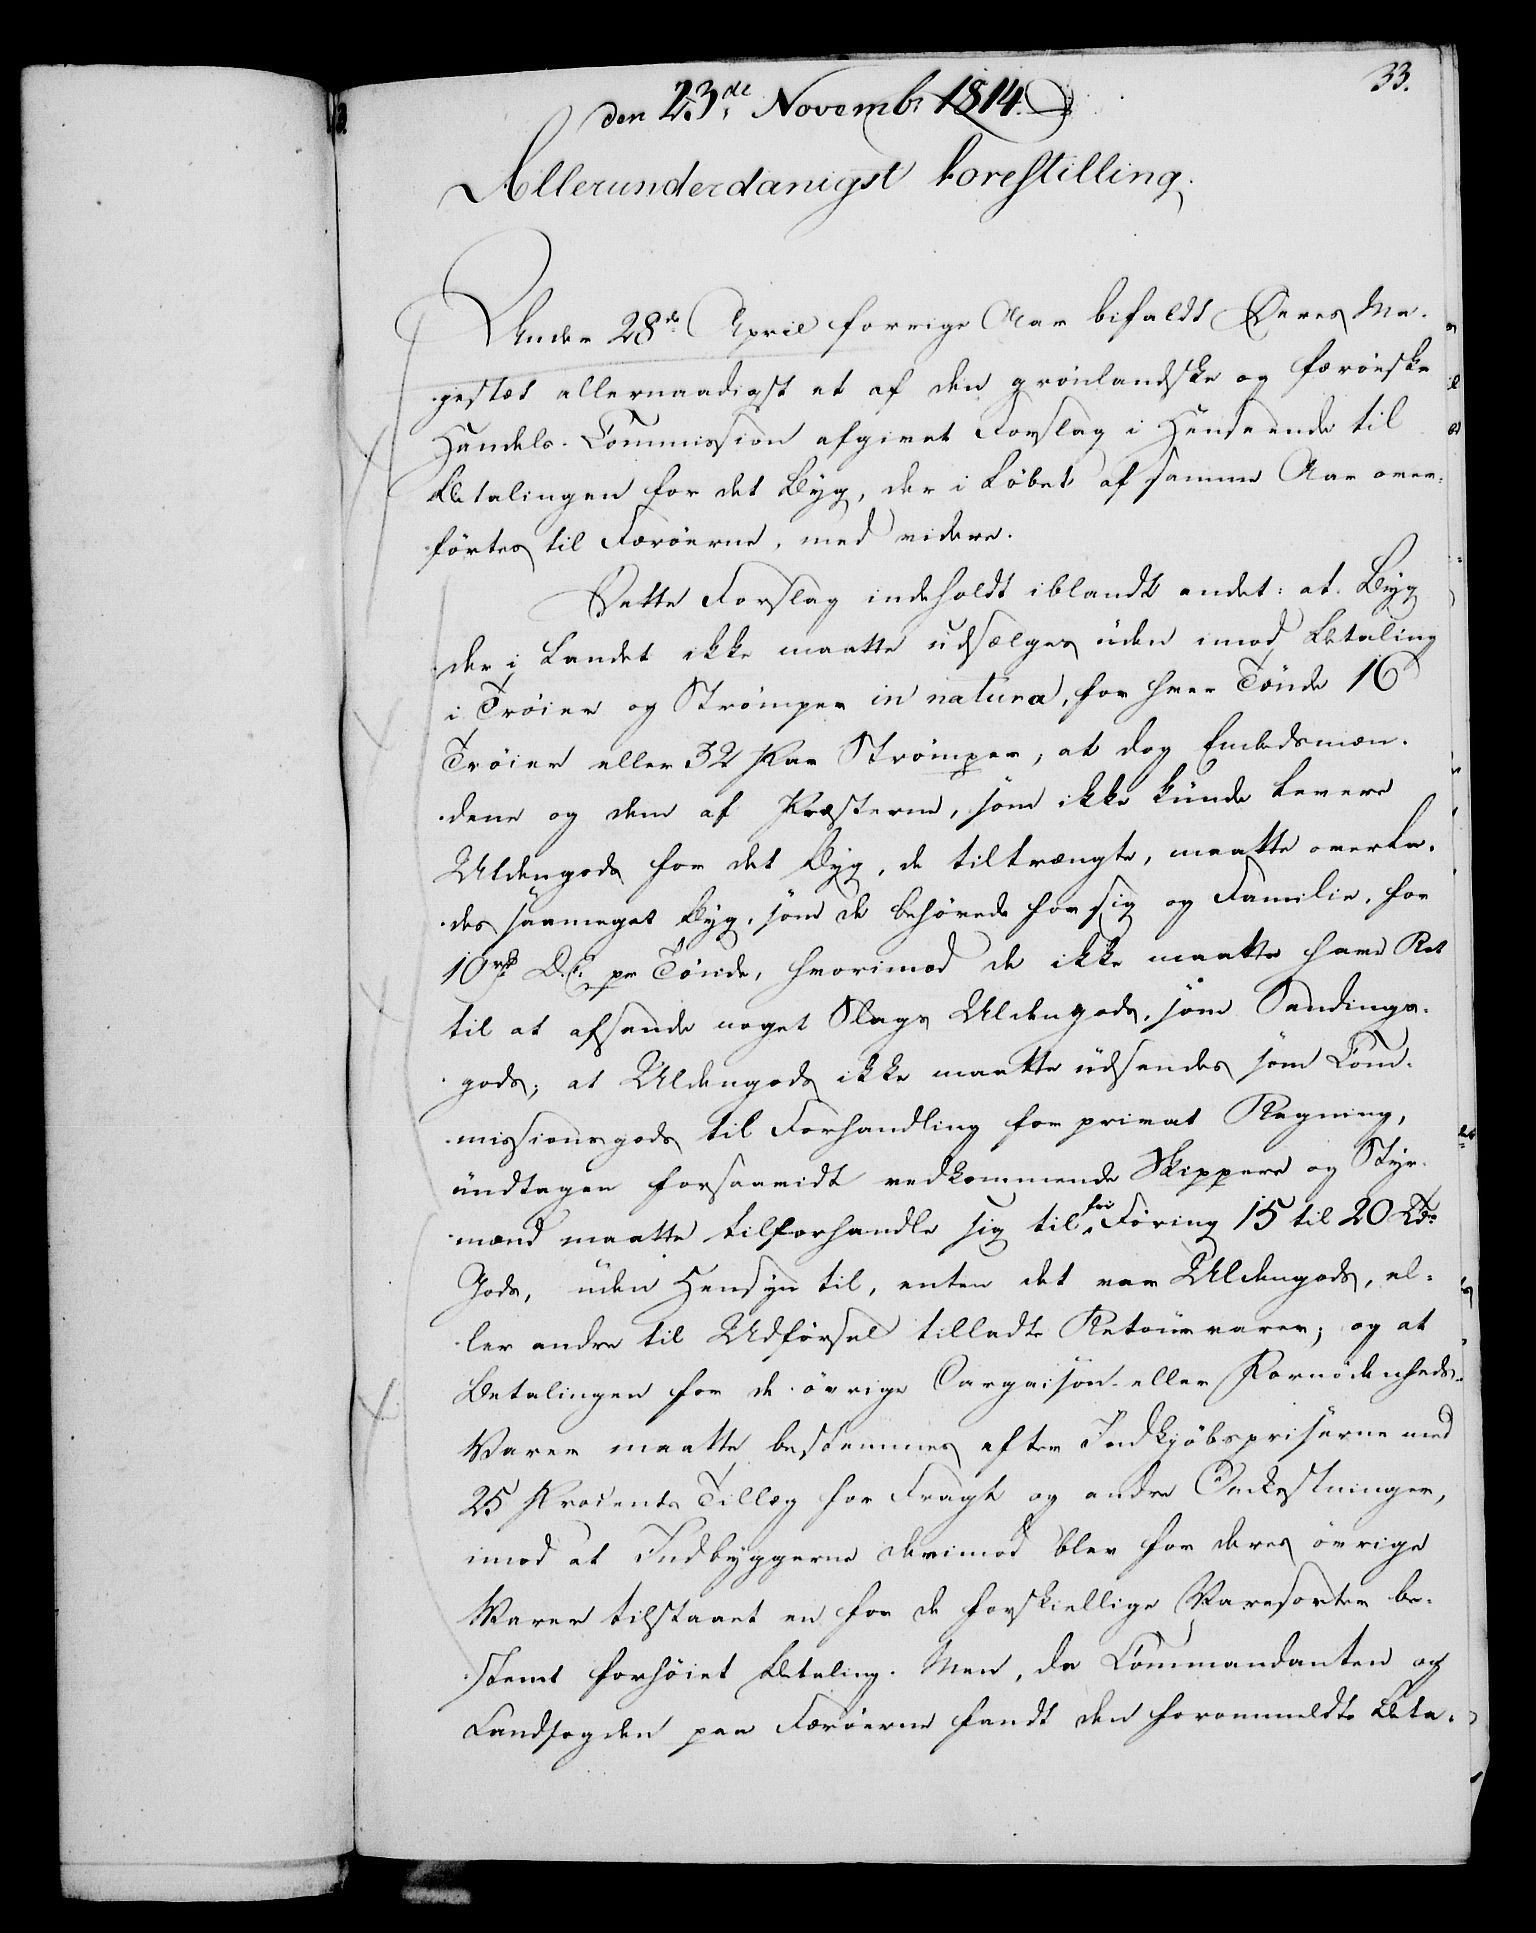 33.
den 23de Novembr 1814.
Allerunderdanigst Forestilling.
Under 28de April forrige Aar bifaldt Deres Ma-
jestæt allernaadigst et af den grönlandske og færöeske
Handels-Commission afgivet Forslag i Henseende til
Betalingen for det Byg, der i Löbet af samme Aar over-
förtes til Færöerne, med videre.
Dette Forslag indeholdt iblandt andet: at Byg
der i Landet ikke maatte udsælges uden imod Betaling
i Tröier og Strömper in natura, for hver Tönde 16
Tröier eller 32 Par Strömper; at dog Embedsmæn-
dene og dem af Præsterne, som ikke kunde levere
Uldengods for det Byg, de tiltrængte, maatte overla-
des saameget Byg, som de behövede for sig og Familie, for
10 rd D.C. pr Tönde, hvorimod de ikke maatte have Ret
til at afsende noget Slags Uldengods, som Sendings-
gods; at Uldengods ikke maatte udsendes som Com-
missionsgods til Forhandling for privat Regning,
undtagen forsaavidt vedkommende Skippere og Styr-
mænd maatte tilforhandle sig til fri Föring 15 til 20 Tdr
Gods, uden Hensyn til, enten det var Uldengods, el-
ler andre til Udförsel tilladte Retourvarer; og at
Betalingen for de övrige Cargaison- eller Fornödenheds-
Varer maatte bestemmes efter Indkjöbspriserne med
25 Procents Tillæg for Fragt og andre Omkostninger,
imod at Indbyggerne derimod blev for deres övrige
Varer tilstaaet en for de forskiellige Varesorter be-
stemt forhöiet Betaling. Men, da Commandanten og
Landfogden paa Færöerne fandt den forommeldte Beta-